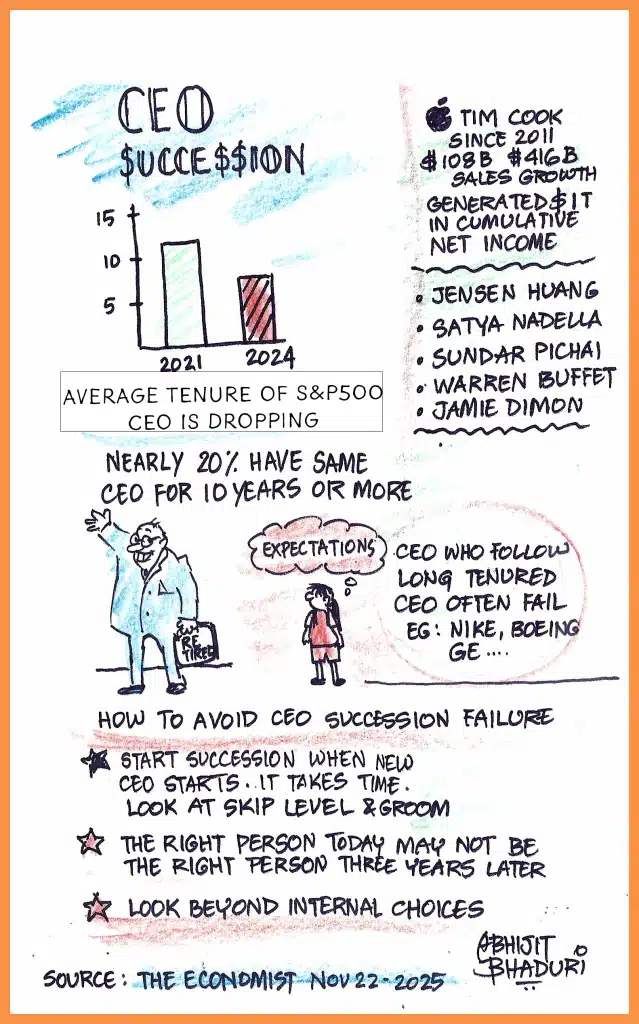 CEO
$UCCE$$ION
15
10
5
2021
2024
AVERAGE TENURE OF S&P500
CEO IS DROPPING
TIM COOK
SINCE 2011
$108B $416B
SALES GROWTH
GENERATED $1T
IN CUMULATIVE
NET INCOME
• JENSEN HUANG
• SATYA NADELLA
• SUNDAR PICHAI
• WARREN BUFFET
• JAMIE DIMON
NEARLY 20% HAVE SAME
CEO FOR 10 YEARS OR MORE
RE
TIRED
EXPECTATIONS
CEO WHO FOLLOW
LONG TENURED
CEO OFTEN FAIL
EG: NIKE, BOEING
GE ....
HOW TO AVOID CEO SUCCESSION FAILURE
START SUCCESSION WHEN NEW
CEO STARTS.. IT TAKES TIME.
LOOK AT SKIP LEVEL & GROOM
THE RIGHT PERSON TODAY MAY NOT BE
THE RIGHT PERSON THREE YEARS LATER
LOOK BEYOND INTERNAL CHOICES
ABHIJIT
BHADURI
SOURCE: THE ECONOMIST NOV 22-2025